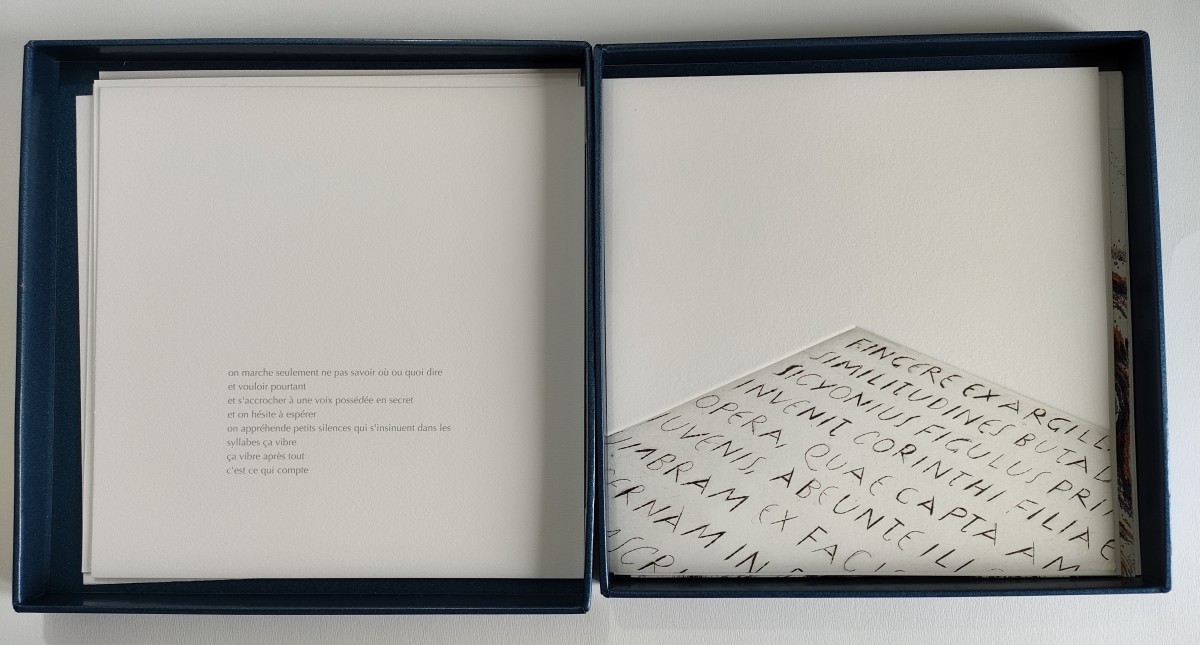 on marche seulement ne pas savoir où ou quoi dire
et vouloir pourtant
et s'accrocher à une voix possédée en secret
et on hésite à espérer
on appréhende petits silences qui s'insinuent dans les
syllabes ça vibre
ça vibre après tout
c'est ce qui compte
FINGERE EX ARGILL
SIMILITUDINES BUTAD
SICYONIUS FIGULUS PRI
INVENIT CORINTHI FILIAE
OPERA, QUAE CAPTA AM
IUVENIS, ABEUNTE IL
UMBRAM EX FACI
ERNAM IN
SCRI